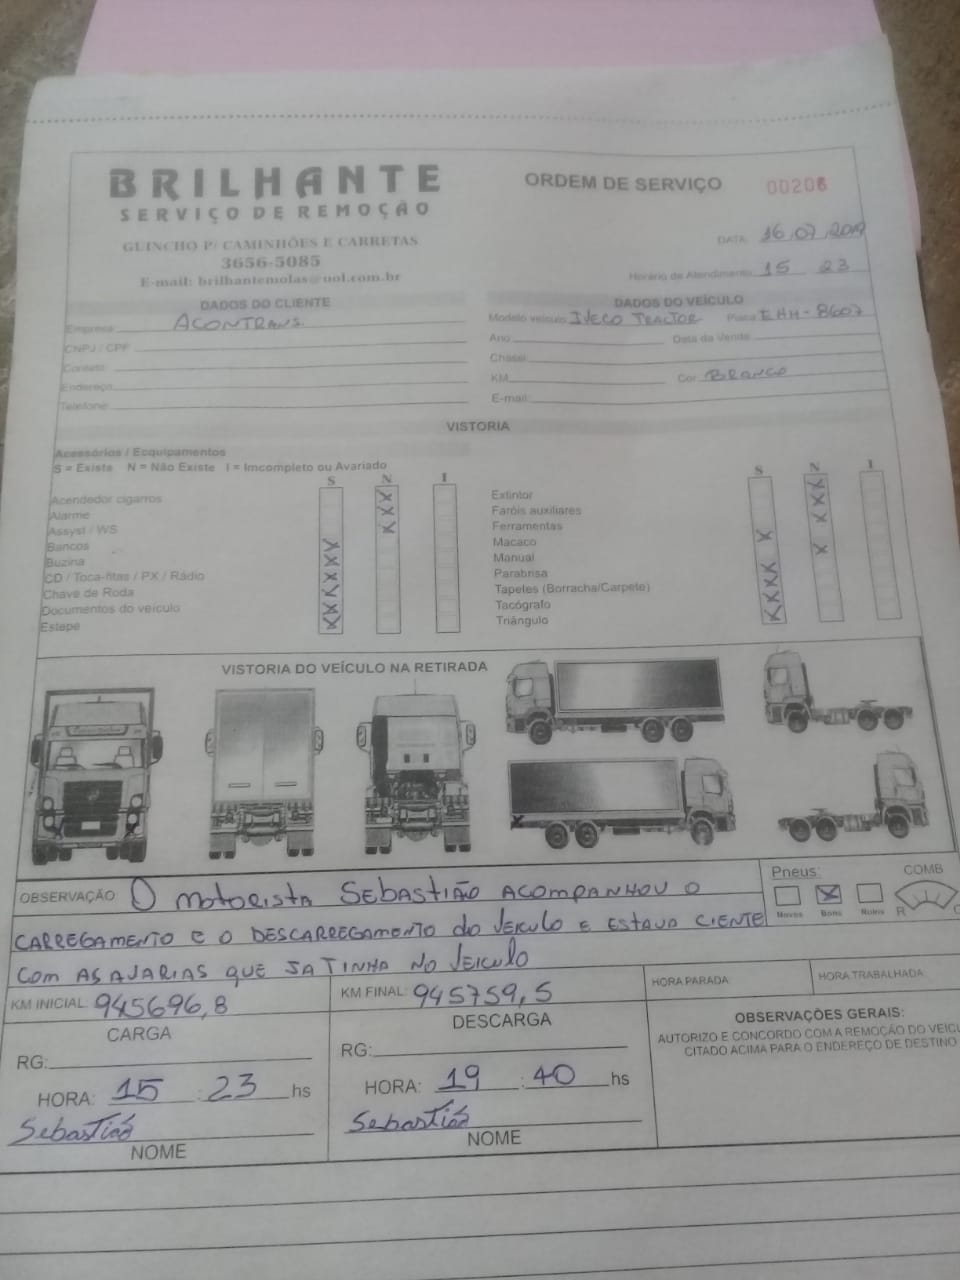 BRILHANTE
SERVIÇO DE REMOÇÃO
GUINCHO P/ CAMINHÕES E CARRETAS
3656-5085
E-mail: brilhantemolas@uol.com.br
ORDEM DE SERVIÇO 00206
DATA: 16,07,2019
Horário de Atendimento 15 23
DADOS DO CLIENTE
Empresa: ACONTRANS.
CNPJ / CPF
Contato:
Endereço
Telefone:
DADOS DO VEÍCULO
Modelo veículo IVECO TRACTOR Placa EHH-8607
Ano: Data da Venda:
Chassi:
KM Cor BRANCO
E-mail:
VISTORIA
Acessórios / Ecquipamentos
S = Existe N = Não Existe I = Imcompleto ou Avariado
S N I
Acendedor cigarros X
Alarme X
Assyst / WS X
Bancos X
Buzina X
CD / Toca-fitas / PX / Rádio X
Chave de Roda X
Documentos do veículo X
Estepe X
S N I
Extintor X
Faróis auxiliares X
Ferramentas X
Macaco X
Manual X
Parabrisa X
Tapetes (Borracha/Carpete) X
Tacógrafo X
Triângulo X
VISTORIA DO VEÍCULO NA RETIRADA
OBSERVAÇÃO: O MOTORISTA SEBASTIÃO ACOMPANHOU O
CARREGAMENTO E O DESCARREGAMENTO do VEICULO E ESTAVA CIENTE
COM AS AVARIAS QUE JA TINHA NO VEICULO
Pneus:
Novos X Bons Ruins
COMB
R C
KM INICIAL: 945696,8
KM FINAL: 945759,5
HORA PARADA:
HORA TRABALHADA:
CARGA
RG:
HORA: 15 : 23 hs
Sebastiãõ
NOME
DESCARGA
RG:
HORA: 19 : 40 hs
Sebastiãõ
NOME
OBSERVAÇÕES GERAIS:
AUTORIZO E CONCORDO COM A REMOÇÃO DO VEIC
CITADO ACIMA PARA O ENDEREÇO DE DESTINO